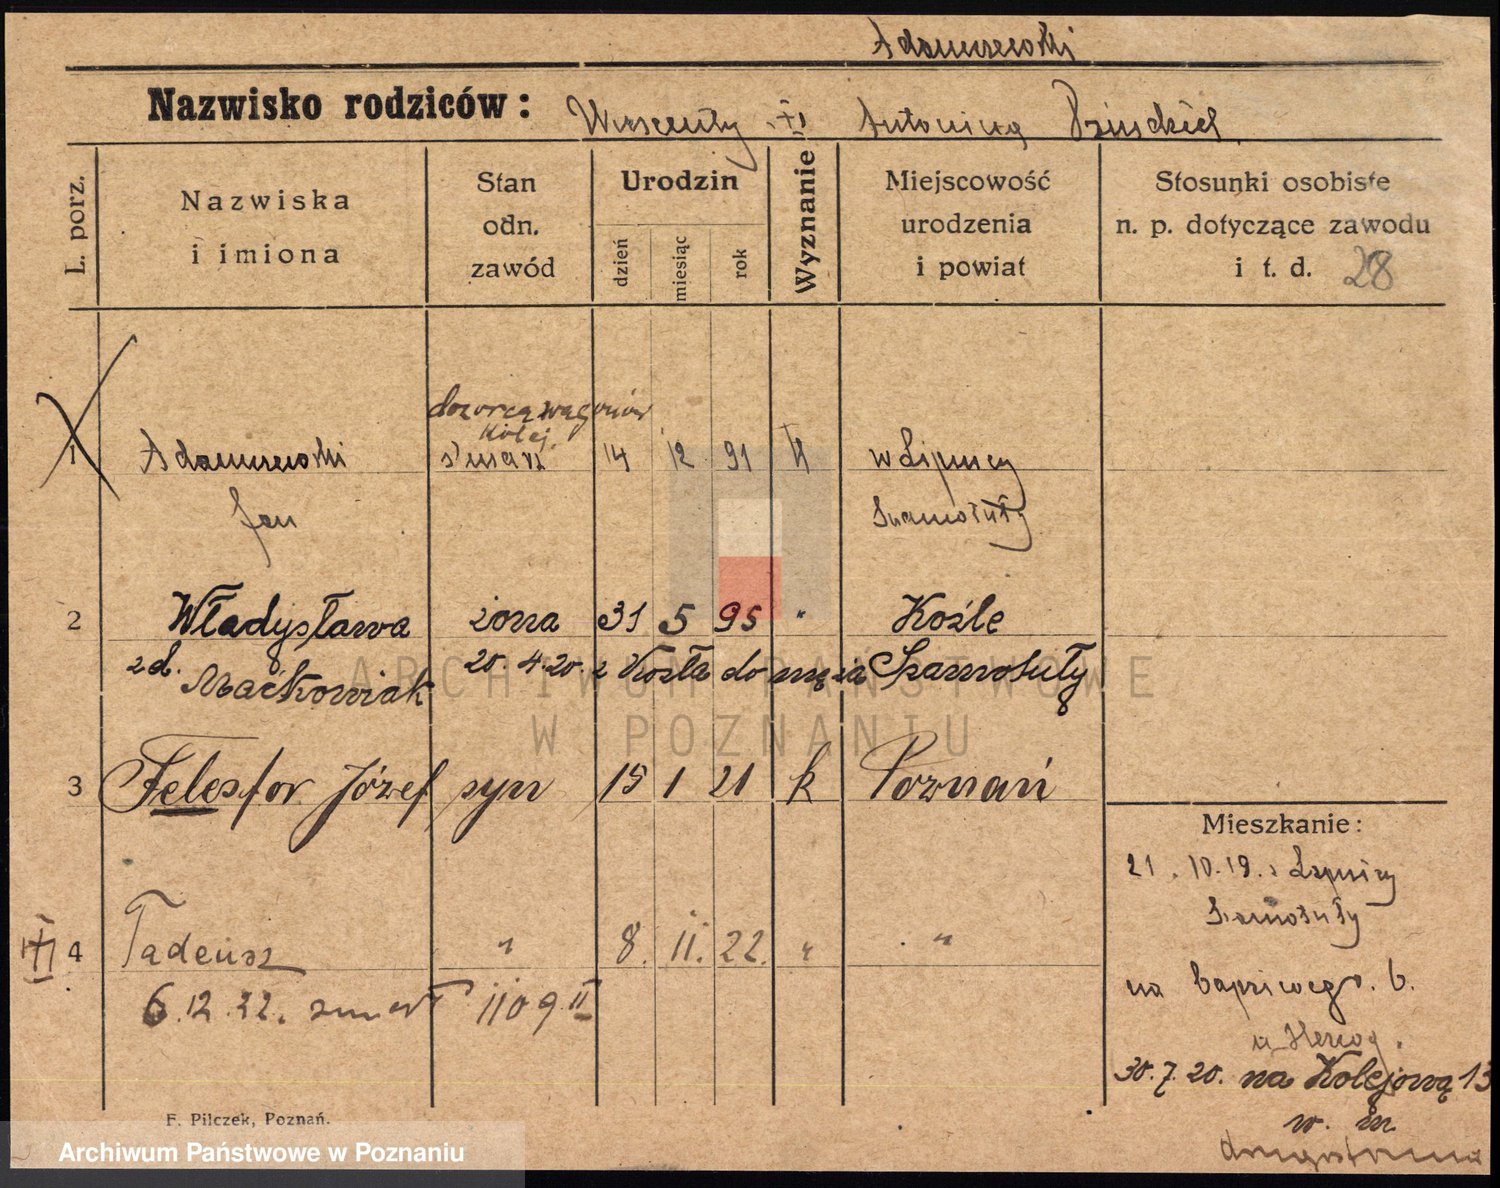 Adamczewski
Nazwisko rodziców: Wincenty Antonina
L. porz.
Nazwiska
i imiona
Stan
odn.
zawód
Urodzin
dzień
miesiąc
rok
Wyznanie
Miejscowość
urodzenia
i powiat
Stosunki osobiste
n. p. dotyczące zawodu
i t. d. 28
dozorca wagonów
kolej.
1 Adamczewski 14 12 91 k w Lipnicy
Jan Szamotuły
2 Władysława żona 31 5 95 " Koźle
zd. Maćkowiak 20.4.20. z Koźla do męża Szamotuły
3 Telesfor Józef syn 15 1 21 k Poznań
Mieszkanie:
21.10.19. z Lipnicy
Szamotuły
4 Tadeusz " 8. 11. 22. " "
6.12.22. zmarł 1109 II
na 6.
u Herzog.
30.7.20. na Kolejową 13
w. m.
F. Pilczek, Poznań.
ARCHIWUM PAŃSTWOWE
W POZNANIU
Archiwum Państwowe w Poznaniu